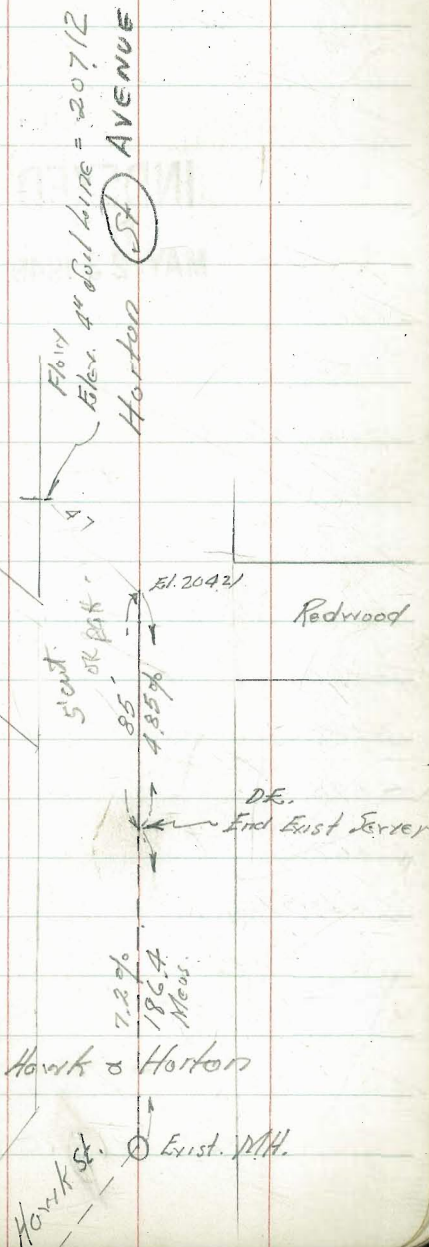 Flow
Elev. 4" Soil Line = 207.12
Horton St. AVENUE
El. 204.21
Redwood
5' cut
85'
4.85%
D.E.
End Exist Sewer
7.2%
186.4
Meas.
Hawk & Horton
Exist. M.H.
Hawk St.